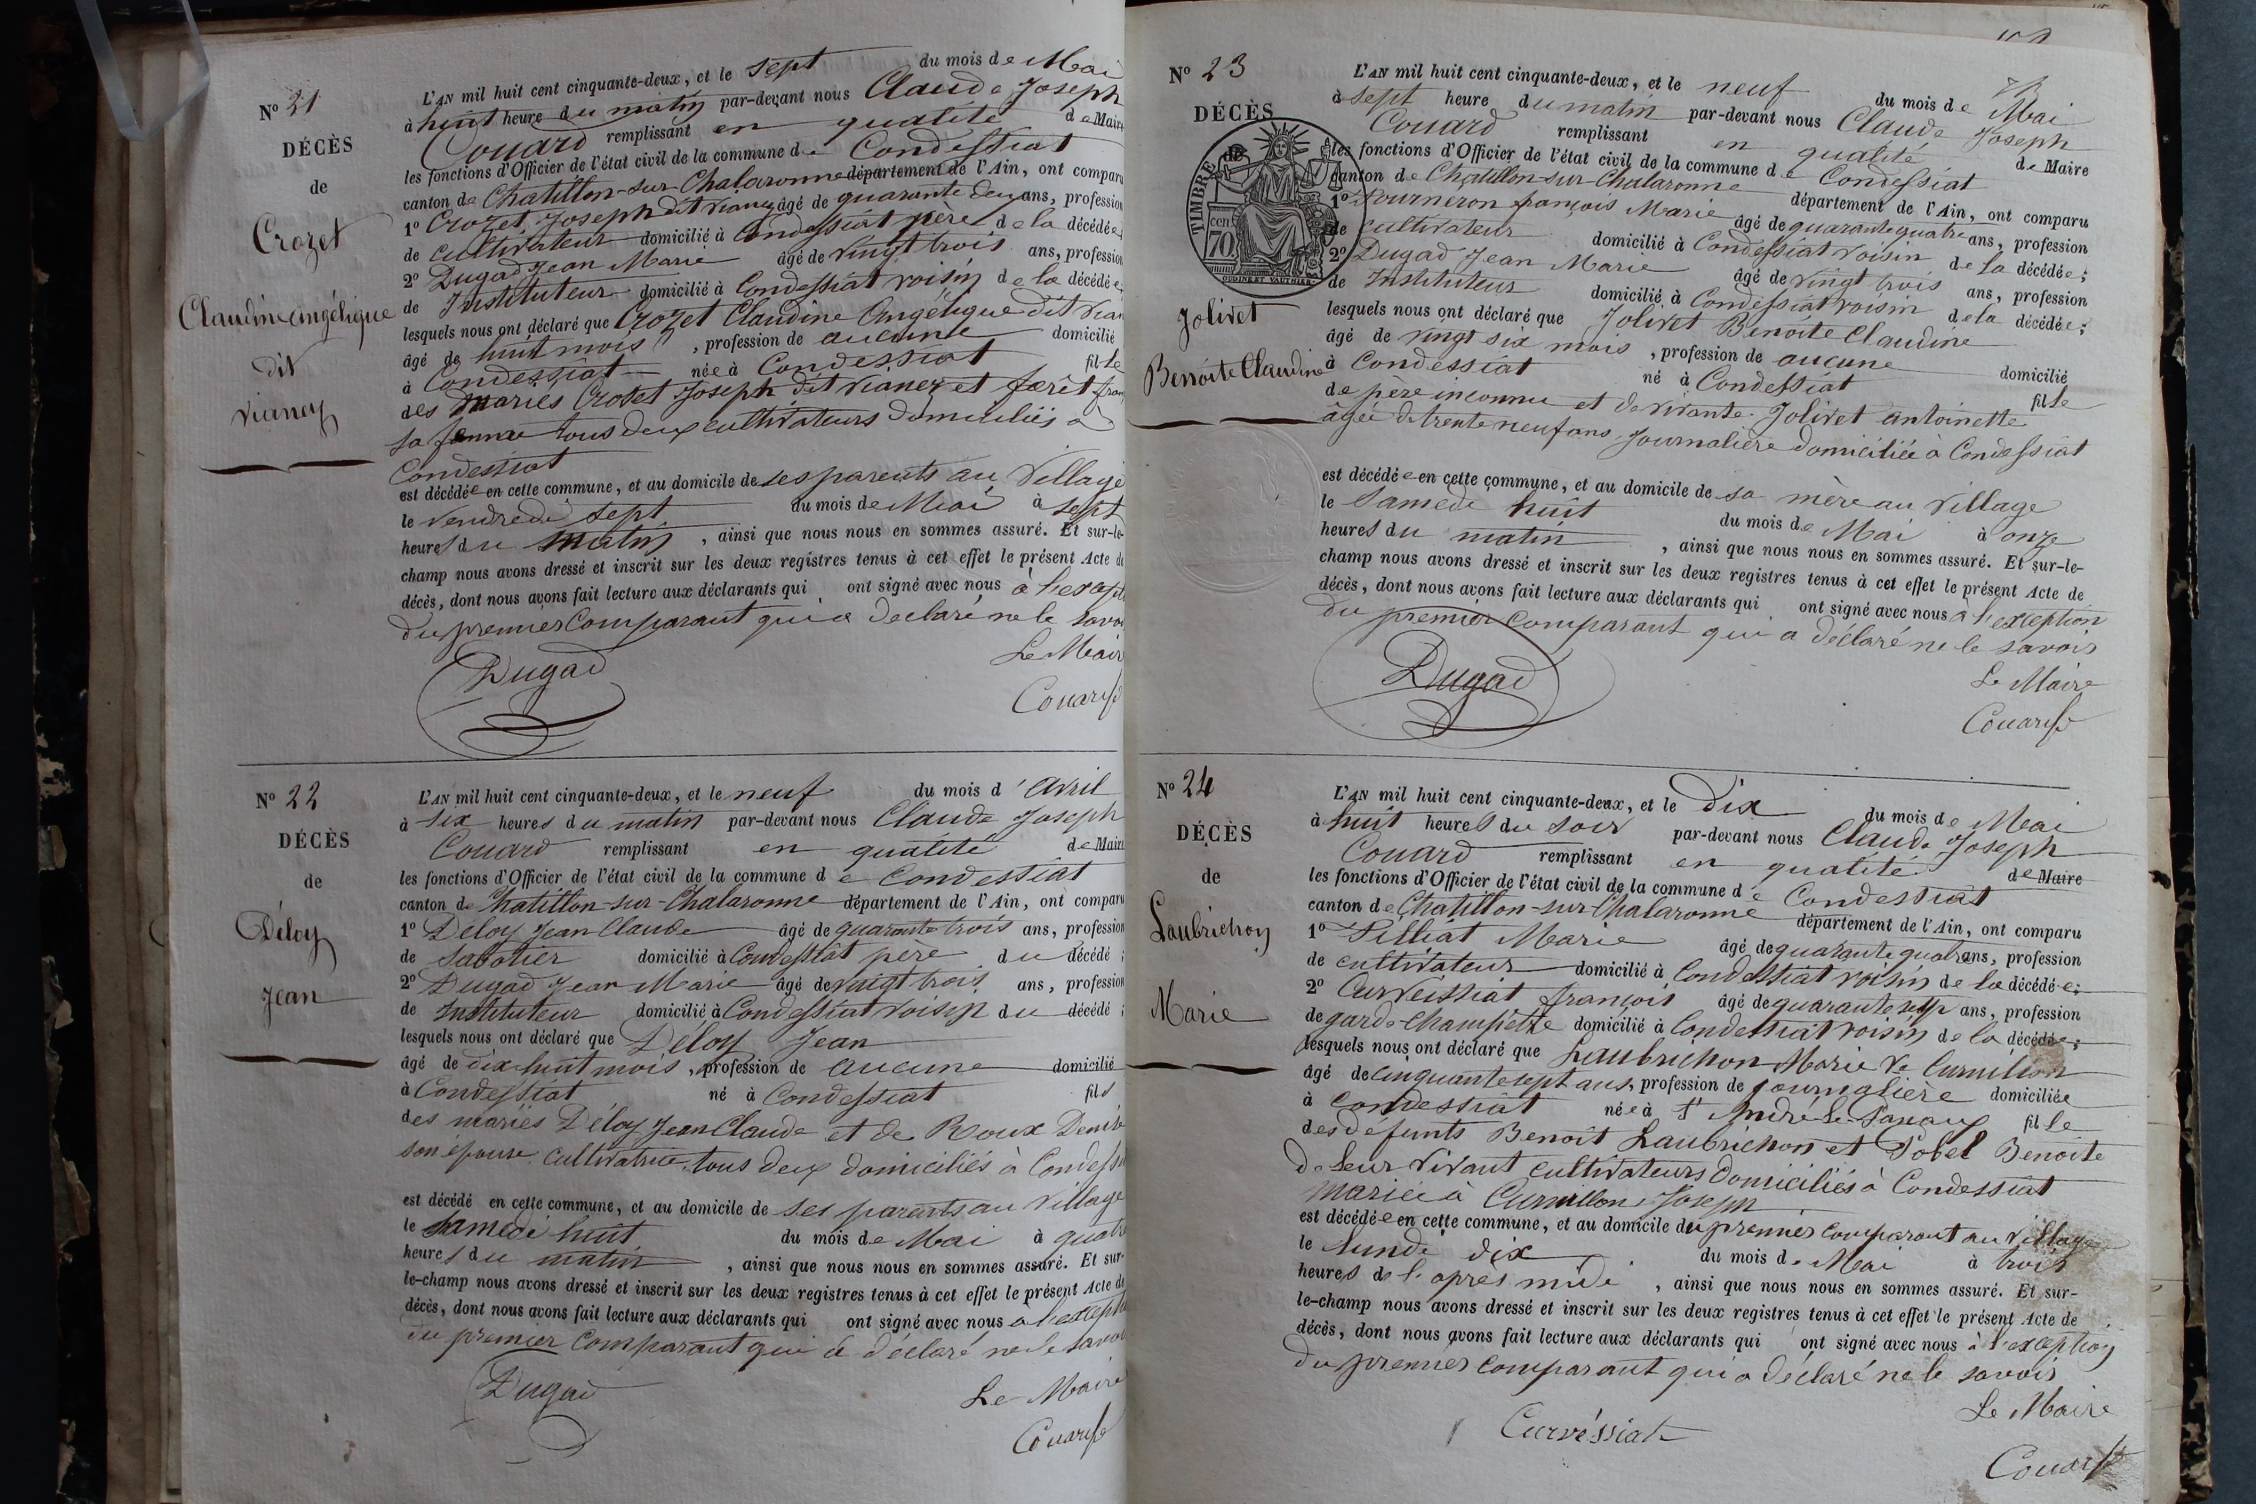 N° 21
DÉCÈS
de
Crozet
Claudine angélique
dit
vianey
L'AN mil huit cent cinquante-deux, et le sept du mois de Mai
à huit heure du matin par-devant nous Claude Joseph
Couard remplissant en qualité de Maire
les fonctions d'Officier de l'état civil de la commune de Condessiat
canton de Chatillon-sur-Chalaronne département de l'Ain, ont comparu
1° Crozet Joseph dit vianey âgé de quarante deux ans, profession
de cultivateur domicilié à Condessiat père de la décédée,
2° Dugad Jean Marie âgé de vingt trois ans, profession
de Instituteur domicilié à Condessiat voisin de la décédée,
lesquels nous ont déclaré que Crozet Claudine Angélique dit vian
âgé de huit mois, profession de aucune domicilié
à Condessiat née à Condessiat fille
des mariés Crozet Joseph dit vianey et forêt fran
sa femme tous deux cultivateurs domiciliés à
Condessiat
est décédée en cette commune, et au domicile de ses parents au Village
le vendredi sept du mois de Mai à sept
heures du matin, ainsi que nous nous en sommes assuré. Et sur-le-
champ nous avons dressé et inscrit sur les deux registres tenus à cet effet le présent Acte de
décès, dont nous avons fait lecture aux déclarants qui ont signé avec nous à l'except
du premier Comparant qui a déclaré ne le savoi
Dugad
Le Maire
Couard
N° 22
DÉCÈS
de
Déloy
Jean
L'AN mil huit cent cinquante-deux, et le neuf du mois d'avril
à six heures du matin par-devant nous Claude Joseph
Couard remplissant en qualité de Maire
les fonctions d'Officier de l'état civil de la commune de Condessiat
canton de Chatillon-sur-Chalaronne département de l'Ain, ont comparu
1° Deloy Jean Claude âgé de quarante trois ans, profession
de sabotier domicilié à Condessiat père du décédé;
2° Dugad Jean Marie âgé de vingt trois ans, profession
de Instituteur domicilié à Condessiat voisin du décédé;
lesquels nous ont déclaré que Déloy Jean
âgé de dix huit mois, profession de aucune domicilié
à Condessiat né à Condessiat fils
des mariés Déloy Jean Claude et de Roux Denise
son épouse cultivatrice, tous deux domiciliés à Condess
est décédé en cette commune, et au domicile de ses parents au Village
le samedi huit du mois de Mai à quatre
heures du matin, ainsi que nous nous en sommes assuré. Et sur-
le-champ nous avons dressé et inscrit sur les deux registres tenus à cet effet le présent Acte de
décès, dont nous avons fait lecture aux déclarants qui ont signé avec nous à l'except
du premier comparant qui a déclaré ne le savoi
Dugad
Le Maire
Couard
N° 23
DÉCÈS
de
TIMBRE
cen
70
OUDINE ET VAUTHIER
Jolivet
Benoite Claudine
L'AN mil huit cent cinquante-deux, et le neuf du mois de Mai
à sept heure du matin par-devant nous Claude Joseph
Couard remplissant en qualité de Maire
les fonctions d'Officier de l'état civil de la commune de Condessiat
canton de Chatillon-sur-Chalaronne département de l'Ain, ont comparu
1° Fourneron françois Marie âgé de quarante quatre ans, profession
de cultivateur domicilié à Condessiat voisin de la décédée;
2° Dugad Jean Marie âgé de vingt trois ans, profession
de Instituteur domicilié à Condessiat voisin de la décédée;
lesquels nous ont déclaré que Jolivet Benoite Claudine
âgé de vingt six mois, profession de aucune domicilié
à Condessiat né à Condessiat fille
de père inconnu et de vivante Jolivet antoinette
âgée de trente neuf ans journalière domiciliée à Condessiat
est décédée en cette commune, et au domicile de sa mère au Village
le Samedi huit du mois de Mai à onze
heures du matin, ainsi que nous nous en sommes assuré. Et sur-le-
champ nous avons dressé et inscrit sur les deux registres tenus à cet effet le présent Acte de
décès, dont nous avons fait lecture aux déclarants qui ont signé avec nous à l'exception
du premier Comparant qui a déclaré ne le savoir
Dugad
Le Maire
Couard
N° 24
DÉCÈS
de
Laubrichon
Marie
L'AN mil huit cent cinquante-deux, et le dix du mois de Mai
à huit heures du soir par-devant nous Claude Joseph
Couard remplissant en qualité de Maire
les fonctions d'Officier de l'état civil de la commune de Condessiat
canton de Chatillon-sur-Chalaronne département de l'Ain, ont comparu
1° Pilliat Marie âgé de quarante quatre ans, profession
de cultivateur domicilié à Condessiat voisin de la décédée;
2° Curveissiat françois âgé de quarante sept ans, profession
de garde-champêtre domicilié à Condessiat voisin de la décédée;
lesquels nous ont déclaré que Laubrichon Marie Ve Curnillon
âgé de cinquante sept ans, profession de journalière domiciliée
à Condessiat née à St André le Panoux fille
des défunts Benoit Laubrichon et Pobel Benoite
de leur vivant cultivateurs domiciliés à Condessiat
mariée à Curnillon Joseph
est décédée en cette commune, et au domicile du premier comparant au Village
le lundi dix du mois de Mai à trois
heures de l'apres midi, ainsi que nous nous en sommes assuré. Et sur-
le-champ nous avons dressé et inscrit sur les deux registres tenus à cet effet le présent Acte de
décès, dont nous avons fait lecture aux déclarants qui ont signé avec nous à l'exception
du premier comparant qui a déclaré ne le savoir
Curvéssiat
Le Maire
Couard